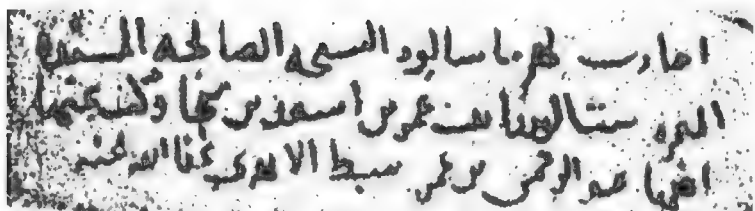 اجازت لهم ما سالوه الشيخه الصالحه المسنده
ست الوزرا بنت عمر بن اسعد بن منجا وكتب عنها
باذنها عبد الرحمن بن عمر سبط الابهري عفا الله عنه